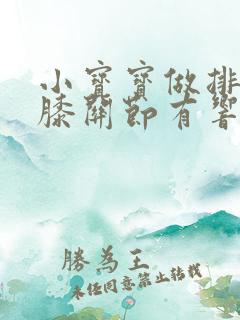 小寶寶做排
膝關節有響
勝為王
未經同意禁止轉載